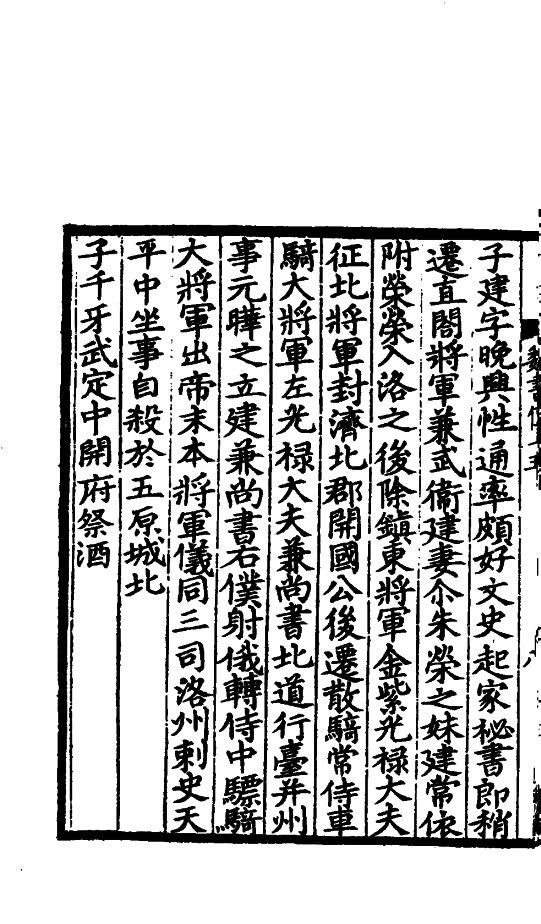 子建字晚興性通率頗好文史起家秘書郎稍
遷直閤將軍兼武衛建妻尒朱榮之妹建常依
附榮榮入洛之後除鎮東將軍金紫光禄大夫
征北將軍封濟北郡開國公後遷散騎常侍車
騎大將軍左光禄大夫兼尚書北道行臺并州
事元曄之立建兼尚書右僕射俄轉侍中驃騎
大將軍出帝末本將軍儀同三司洛州刺史天
平中坐事自殺於五原城北
子千牙武定中開府祭酒